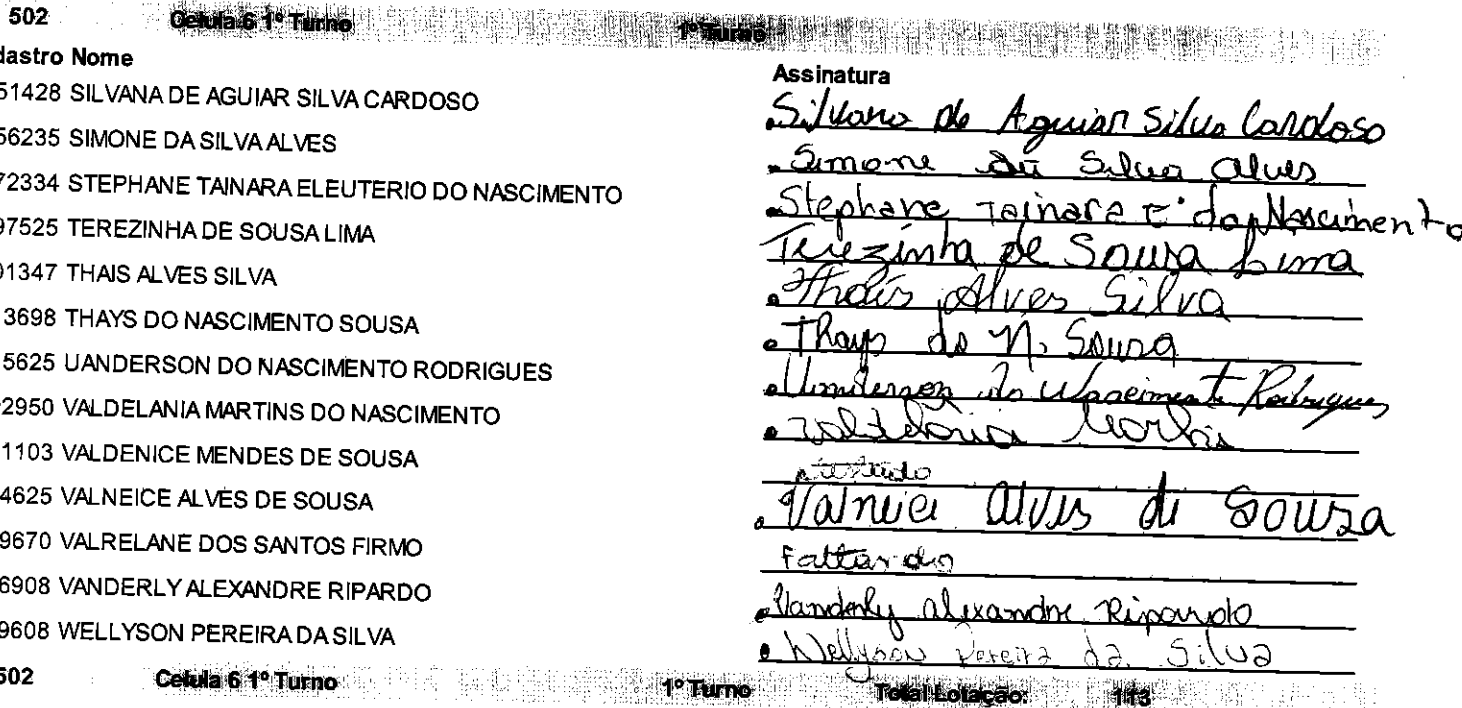 502 Celula 6 1º Turno 1º Turno
dastro Nome Assinatura
51428 SILVANA DE AGUIAR SILVA CARDOSO Silvana de Aguiar Silva Cardoso
56235 SIMONE DA SILVA ALVES Simone da Silva Alves
72334 STEPHANE TAINARA ELEUTERIO DO NASCIMENTO Stephane Tainara E. do Nascimento
97525 TEREZINHA DE SOUSA LIMA Terezinha de Sousa Lima
01347 THAIS ALVES SILVA Thais Alves Silva
3698 THAYS DO NASCIMENTO SOUSA Thays do N. Sousa
5625 UANDERSON DO NASCIMENTO RODRIGUES Uanderson do Nascimento Rodrigues
2950 VALDELANIA MARTINS DO NASCIMENTO Valdelania Martins
1103 VALDENICE MENDES DE SOUSA
4625 VALNEICE ALVES DE SOUSA Valneice Alves de Sousa
9670 VALRELANE DOS SANTOS FIRMO
6908 VANDERLY ALEXANDRE RIPARDO Vanderly Alexandre Ripardo
9608 WELLYSON PEREIRA DA SILVA Wellyson Pereira da Silva
502 Celula 6 1º Turno 1º Turno Total Lotação: 113